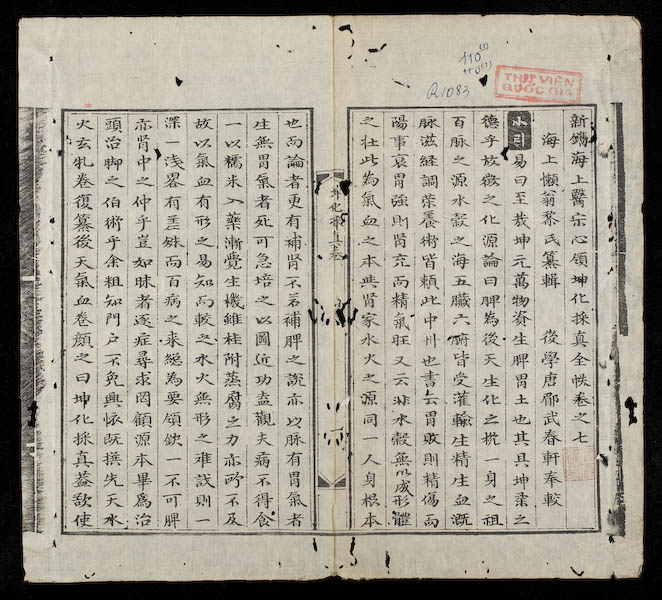 110(1)
110(2)
R.1083
THƯ VIỆN
QUỐC GIA
新鐫海上醫宗心領坤化採真全帙卷之七
海上懶翁黎氏纂輯 後學唐郿武春軒奉較
小引 易曰至哉坤元萬物資生脾胃土也其具坤柔之
德乎故徵之化源論曰脾為後天生化之機一身之祖
百脉之源水穀之海五臟六腑皆受灌輸生精生血溉
脉滋經調榮養衛皆賴此中州也書云胃敗則精傷而
陽事衰胃強則腎充而精氣旺又云非水穀無以成形體
之壯此為氣血之本與腎家水火之源同一人身根本
也而論者更有補腎不若補脾之說亦以脉有胃氣者
生無胃氣者死可急培之以圖近功盍觀夫病不得食
一以糯米入藥漸覺生機雖桂附蒸腐之力亦所不及
故以氣血有形之易知而較之水火無形之难誤則一
深一淺畧有差殊而百病之来總為要領欽一不可脾
亦腎中之仲乎豈如昧者逐症尋求罔顧源本畢為治
頭治脚之伯術乎余粗知門户不免興怀既撰先天水
火玄牝卷復纂後天氣血卷顔之曰坤化採真盖欲使
坤化採真卷